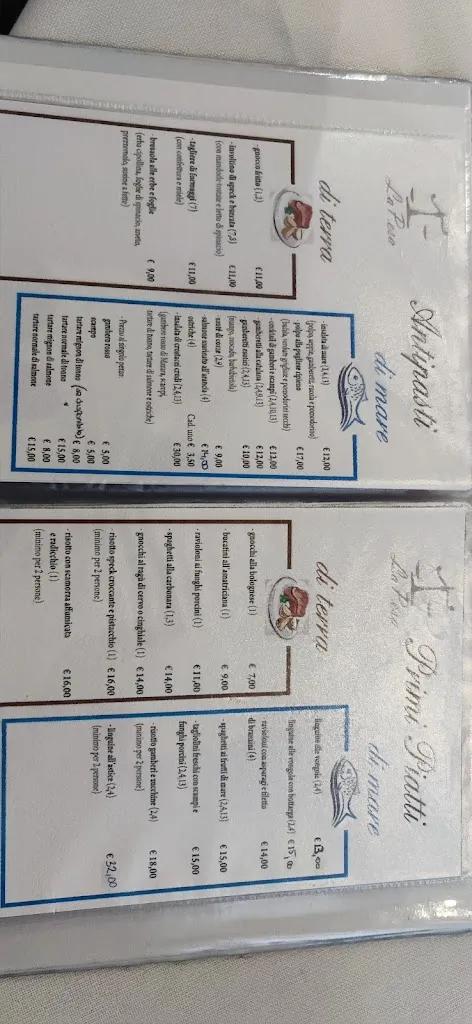 La Pesa
Antipasti
di terra
- gnocco fritto (1,3) €11,00
- involtino di speck e burrata (7,8) €11,00
(con mandorle tostate e letto di spinacio)
- tagliere di formaggi (7) €11,00
(con confetture e miele)
- bresaola alle erbe e foglie € 9,00
(erba cipollina, foglie di spinacio, menta,
prezzemolo, sesamo a fette)
di mare
- insalata di mare (2,4,13) €12,00
(polpo, seppie, gamberetti, rucola e pomodorino)
- polpo alla pugliese ripieno €17,00
- cocktail di gamberi e scampi (2,4,10,13) €12,00
- gamberetti alla catalana (2,4,9,13) €12,00
- gamberetti esotici (2,4,13) €10,00
(mango, avocado, barbabietola)
- sauté di cozze (2,9) € 9,00
- salmone marinato all'aneto (4) €14,00
- ostriche (4) Cad. uno € 3,50
- insalata di crostacei crudi (2,4,13) €30,00
(gambero rosso di Mazara, scampi,
tartare di tonno, tartare di salmone e ostriche)
- Prezzo al singolo pezzo:
gambero rosso € 5,00
scampo € 5,00
tartare mignon di tonno € 8,00
tartare normale di tonno €15,00
tartare mignon di salmone € 8,00
tartare normale di salmone €15,00
La Pesa
Primi Piatti
di terra
- gnocchi alla bolognese (1) € 7,00
- bucatini all'amatriciana (1) € 9,00
- ravioloni ai funghi porcini (1) €11,00
- spaghetti alla carbonara (1,3) €14,00
- gnocchi al ragù di cervo o cinghiale (1) €14,00
- risotto speck croccante e pistacchio (1) €16,00
(minimo per 2 persone)
- risotto con scamorza affumicata
e radicchio (1) €16,00
(minimo per 2 persone)
di mare
- linguine alle vongole (2,4) €13,00
linguine alle vongole con bottarga (2,4) €15,00
ravioloni con asparagi e filetto
di branzini (4) €14,00
- spaghetti ai frutti di mare (2,4,13) €15,00
- tagliolini freschi con scampi e
funghi porcini (2,4,13) €15,00
- risotto gamberi e zucchine (2,4) €18,00
(minimo per 2 persone)
- linguine all'astice (2,4) €32,00
(minimo per 2 persone)